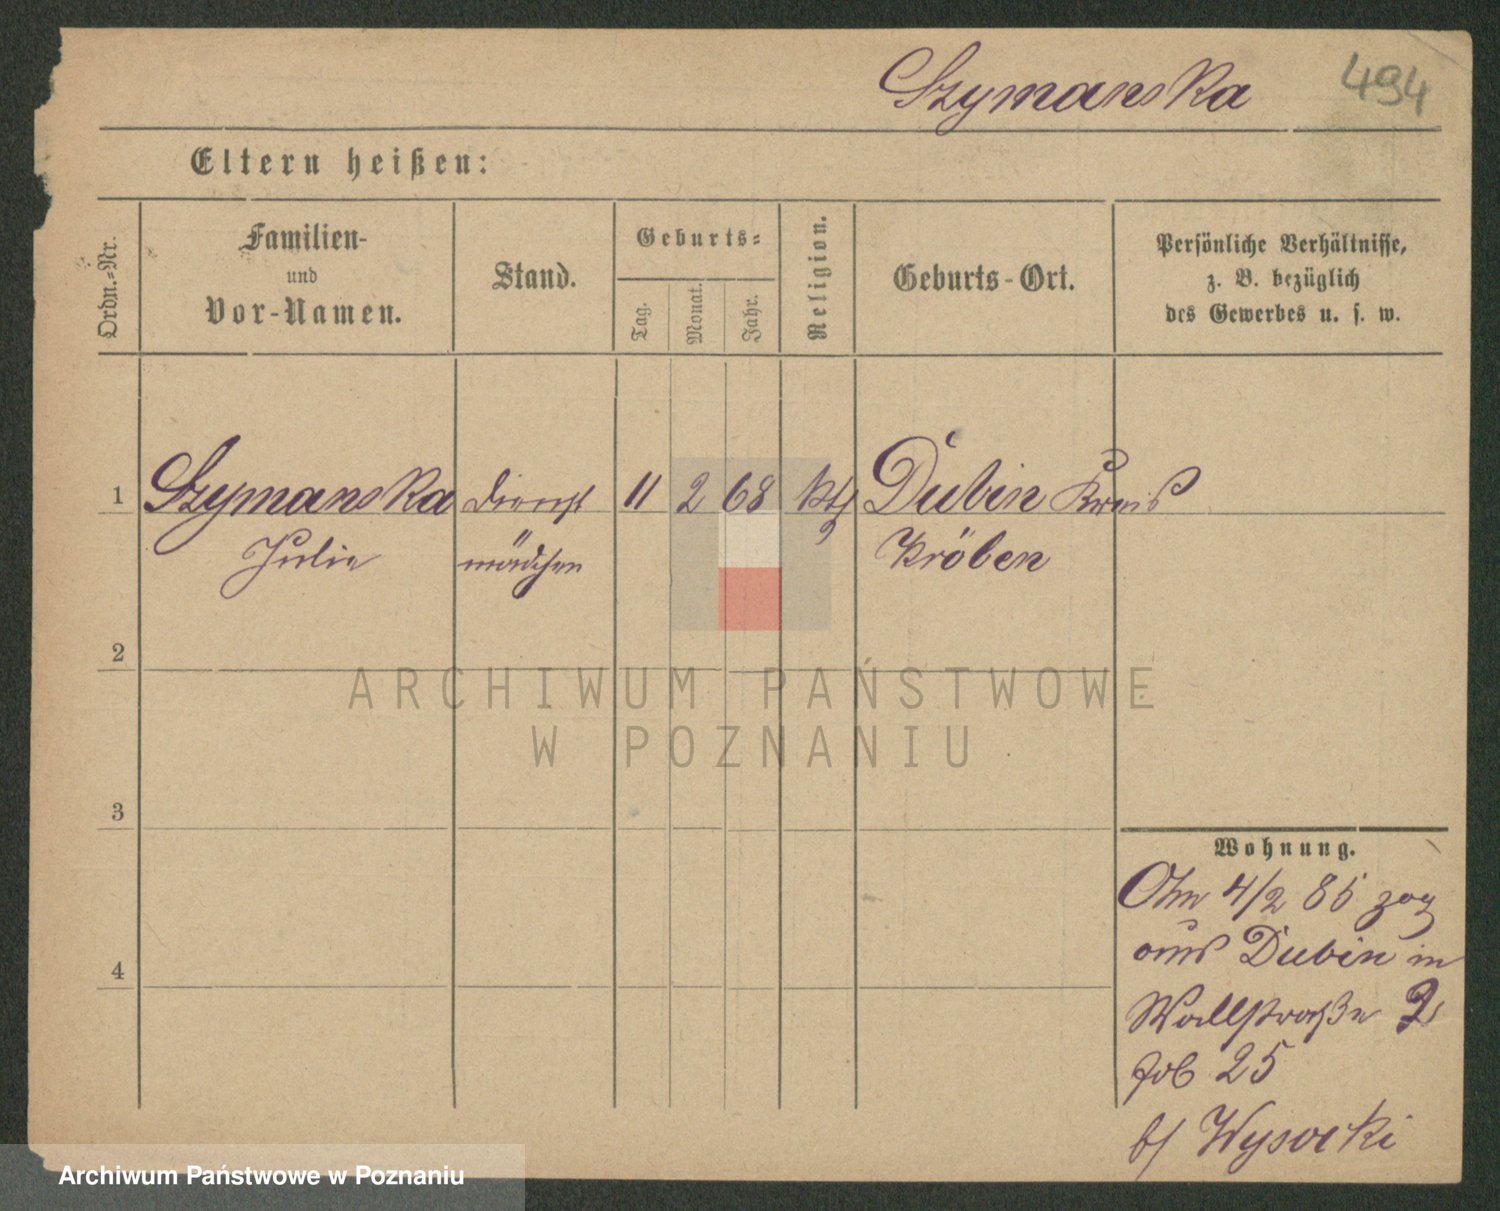 Szymanska
494
Eltern heißen:
Ordn.-Nr.
Familien-
und
Vor-Namen.
Stand.
Geburts-
Tag.
Monat.
Jahr.
Religion.
Geburts-Ort.
Persönliche Verhältnisse,
z. B. bezüglich
des Gewerbes u. s. w.
1 Szymanska Dienst 11 2 68 kth Dubin Kreis
Julie mädchen Kröben
2
3
4
Wohnung.
4/2 85 zog
aus Dubin in
Wallstraße
25
b/ Wysocki
ARCHIWUM PAŃSTWOWE
W POZNANIU
Archiwum Państwowe w Poznaniu